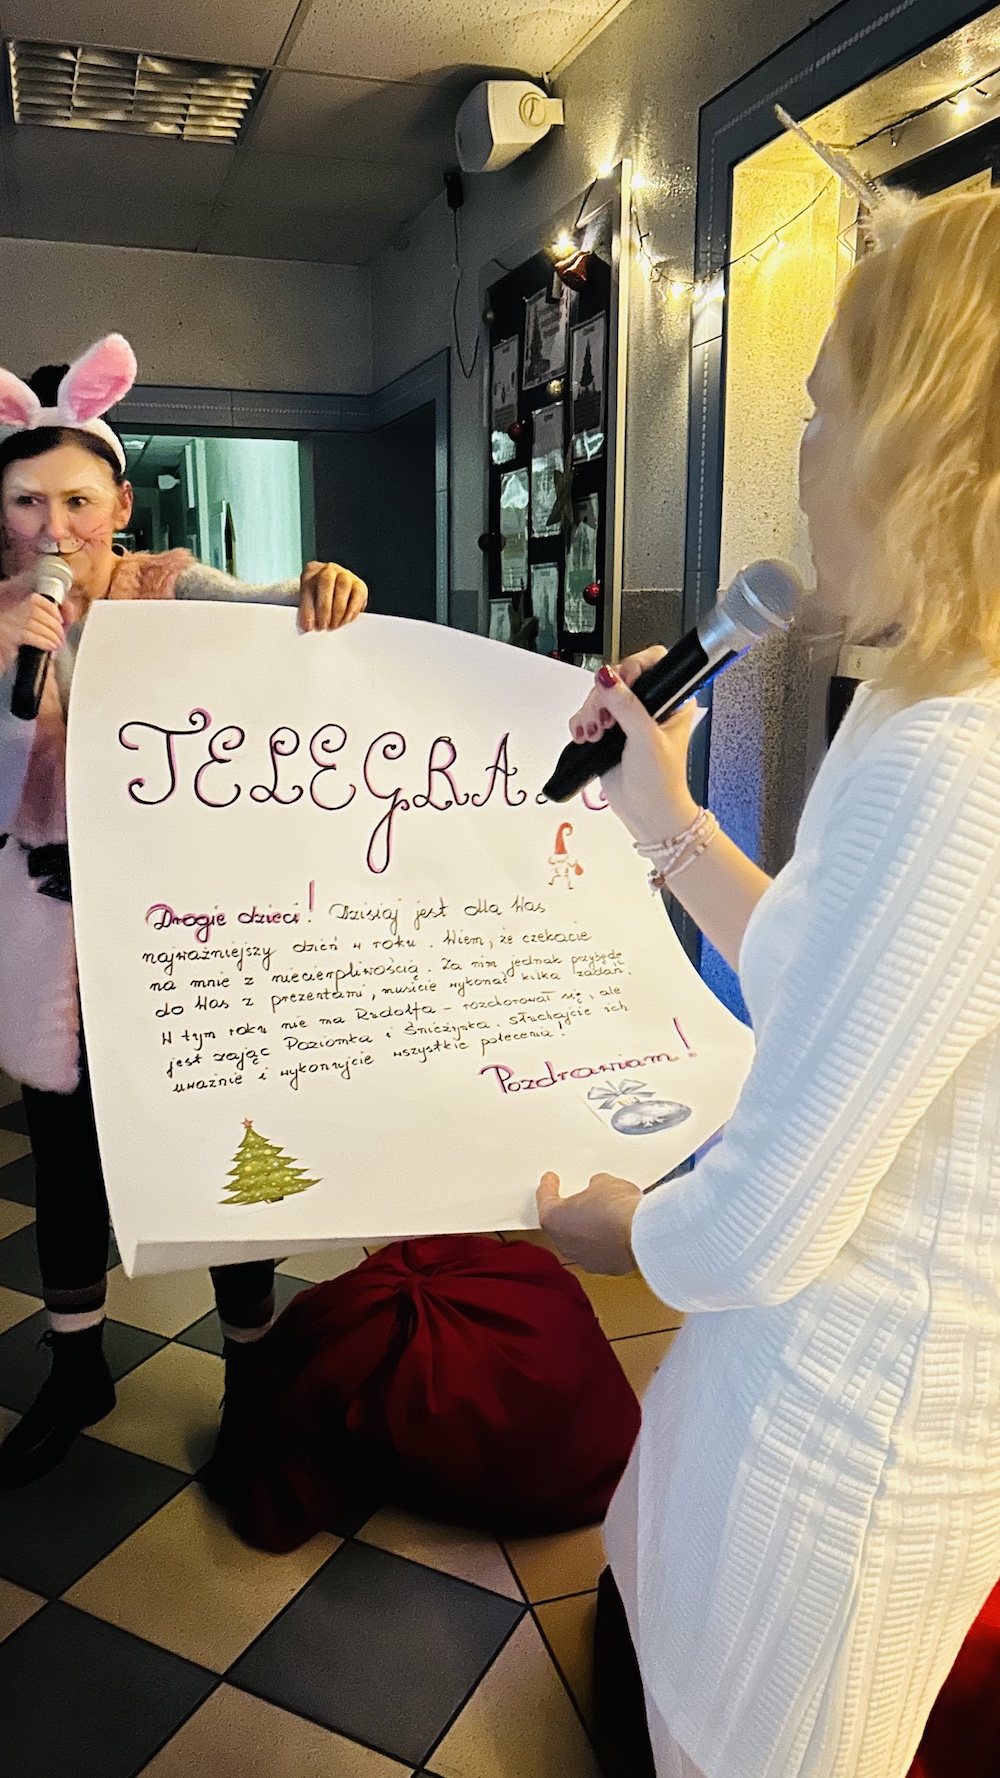 TELEGRA
Drogie dzieci! Dzisiaj jest dla Was
najważniejszy dzień w roku. Wiem, że czekacie
na mnie z niecierpliwością. Za nim jednak przybędę
do Was z prezentami, musicie wykonać kilka zadań.
W tym roku nie ma Rudolfa - rozchorował się, ale
jest zając Poziomka i Śnieżynka. Słuchajcie ich
uważnie i wykonujcie wszystkie polecenia!
Pozdrawiam!